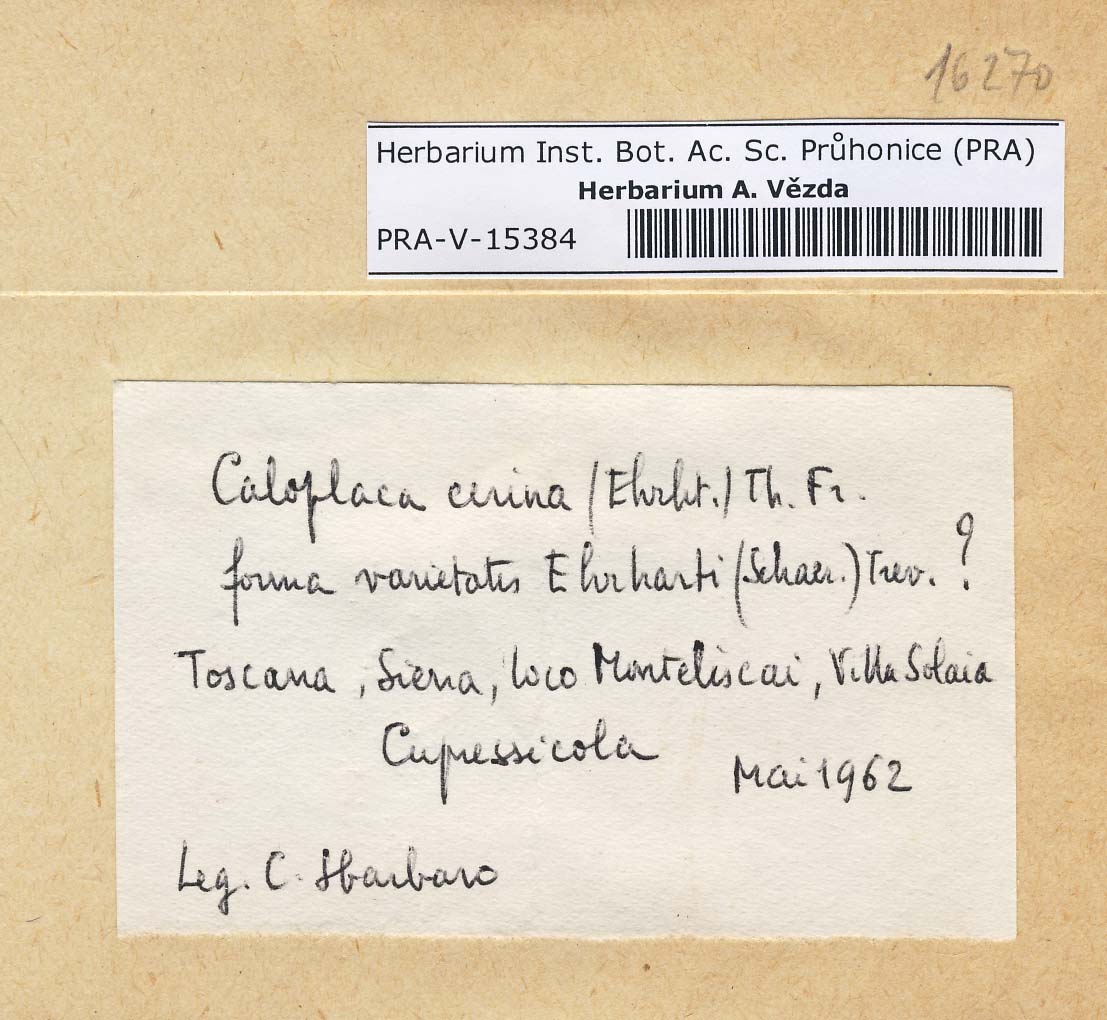 16270
Herbarium Inst. Bot. Ac. Sc. Průhonice (PRA)
Herbarium A. Vězda
PRA-V-15384
Caloplaca cerina (Ehrht.) Th. Fr.
forma varietatis Ehrharti (Schaer.) Trev. ?
Toscana, Siena, loco Monteliscai, Villa Solaia
Cupressicola
Mai 1962
Leg. C. Sbarbaro